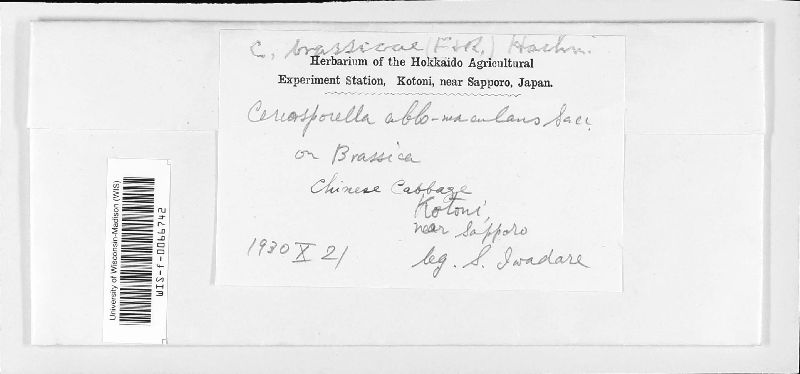 C. brassicae (F&R.) Hoehn.
Herbarium of the Hokkaido Agricultural
Experiment Station, Kotoni, near Sapporo, Japan.
Cercosporella albo-maculans Sacc.
on Brassica
Chinese Cabbage
Kotoni,
near Sapporo
1930 X 21
leg. S. Iwadare
University of Wisconsin-Madison (WIS)
WIS-f-0066742